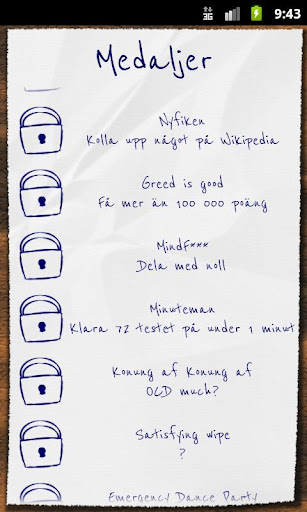 3G 9:43
Medaljer
Nyfiken
Kolla upp något på Wikipedia
Greed is good
Få mer än 100 000 poäng
MindF***
Dela med noll
Minuteman
Klara 72 testet på under 1 minut
Konung af Konung af
OCD much?
Satisfying wipe
?
Emergency Dance Party